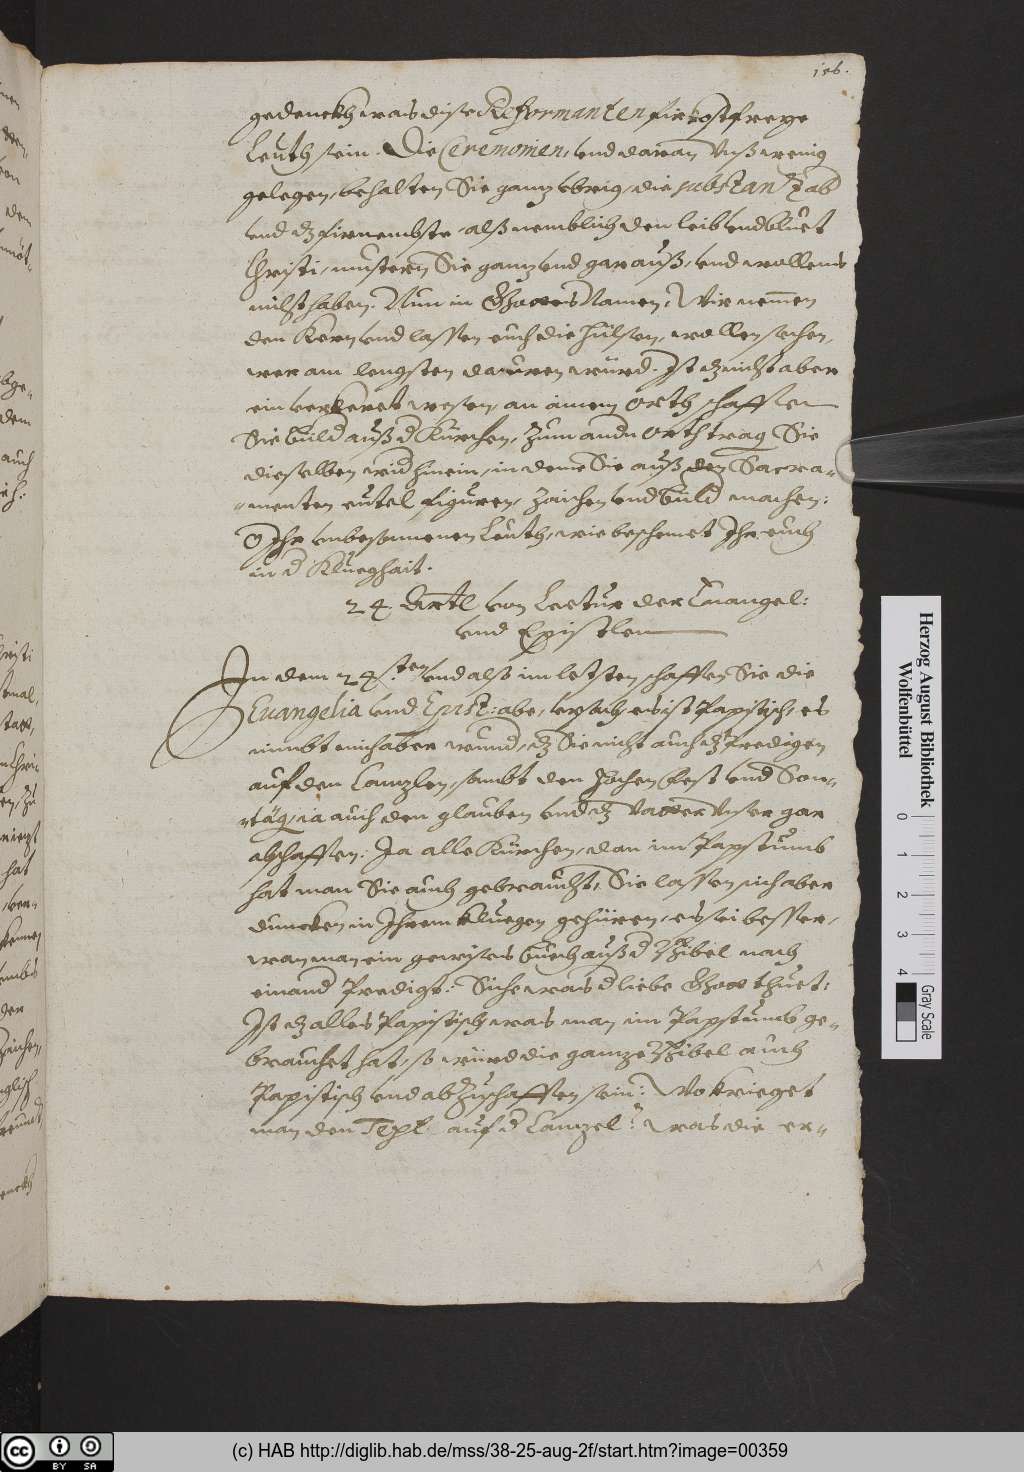 156.
gedenckh was dise Reformanten fir kostfreye
Leuth sein. Die Ceremonien, und daran Unß wenig
gelegen, behalten Sie ganz ubrig, die substantz ab
und dz firnembste, alß nemblich den leib und bluet
Christi, mustern Sie ganz und gar auß, und wollens
nit haben. Nun in Gottes Namen, Wir nemmen
den Kern und lassen euch die hülsen, wollen sehen,
wer am lengsten dauren würd. Ist dz nicht aber
ein verkeret wesen, an ainem orth schaffen
Sie büld auß d Kürchen, zum andn orth trag Sie
dieselben wid hinein, in deme Sie auß den Sacra-
menten eütel figuren, zaichen und büld machen:
O Ihr unbesonnenen Leuth, wie beschemet Ihr euch
in d Kluegheit.
24. Artl von Lectur der Euangel:
und Epistlen
In dem 24.sten und alß im letsten schaffen Sie die
Euangelia und Epist: abe, ursach es ist Papistisch, es
nimbt mich aber wund, dz Sie nicht auch dz Predigen
auf den Canzlen, sambt den hochen fest und Son-
täg, ia auch den glauben und dz Vatter Unser gar
abschaffen: Ja alle Kürchen, dan im Papstumb
hat man Sie auch gebraucht, Sie lassen sich aber
duncken in Ihrem kluegen gehüren, es sei besser,
wan man ein gewises buech auß d Bibel nach
einand Predigt: Siche was d liebe Gott thuet:
Ist dz alles Papistisch was man im Papstumb ge-
brauchet hat, so würd die ganze Bibel auch
Papistisch und abzuschaffen sein: Wo krieget
man den Text auf d Canzel? Was die er-
Herzog August Bibliothek
Wolfenbüttel
0 1 2 3 4
Gray Scale
cc BY SA
(c) HAB http://diglib.hab.de/mss/38-25-aug-2f/start.htm?image=00359